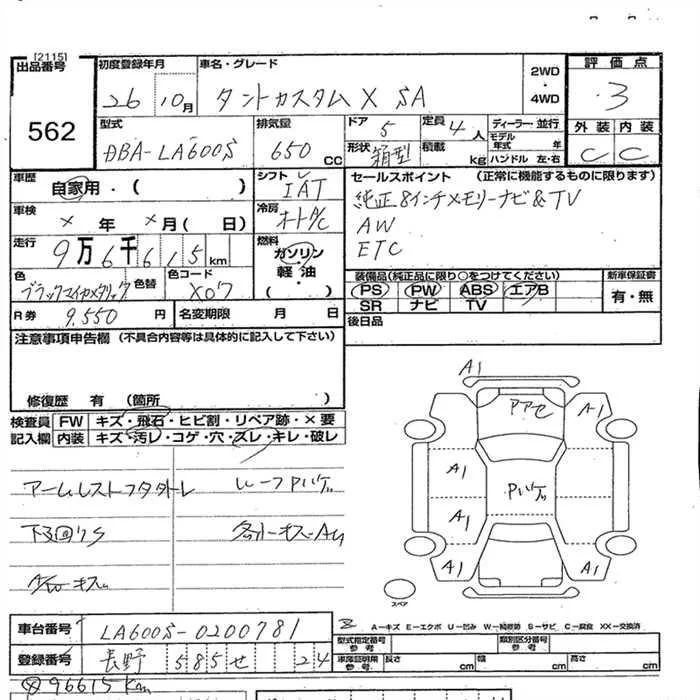 [2115]
出品番号
562
初度登録年月
26 10月
車名・グレード
タントカスタムX SA
2WD
・
4WD
評価点
3
外装 内装
C C
型式
DBA-LA600S
排気量
650 CC
ドア 5
定員 4人
形状 箱型
積載 kg
ディーラー・並行
モデル年式 年
ハンドル 左・右
車歴
自家用・( )
シフト
IAT
セールスポイント (正常に機能するものに限ります)
純正8インチメモリーナビ&TV
AW
ETC
車検
× 年 ×月( 日)
冷房
オートA/C
走行
9万6千615km
燃料
ガソリン
軽油
色
ブラックマイカメタリック
色替
色コード
X07
装備品(純正品に限り○をつけてください)
PS PW ABS エアB
SR ナビ TV
新車保証書
有・無
R券 9,550円
名変期限 月 日
後日品
注意事項申告欄 (不具合内容等は具体的に記入して下さい)
修復歴 有 (箇所 )
検査員記入欄
FW キズ・飛石・ヒビ割・リペア跡・×要
内装 キズ・汚レ・コゲ・穴・ズレ・キレ・破レ
A1
アアセ
A1
A1
Pハゲ
A1
A1
A1
スペア
ルーフPハゲ
A-キズ E-エクボ U-凹み W-補修跡 S-サビ C-腐食 XX-交換済
車台番号
LA600S-0200781
型式指定番号 参考
類別区分番号 参考
登録番号
長野 585 せ 24
車庫証明用 参考
長さ cm
幅 cm
高さ cm
96615km